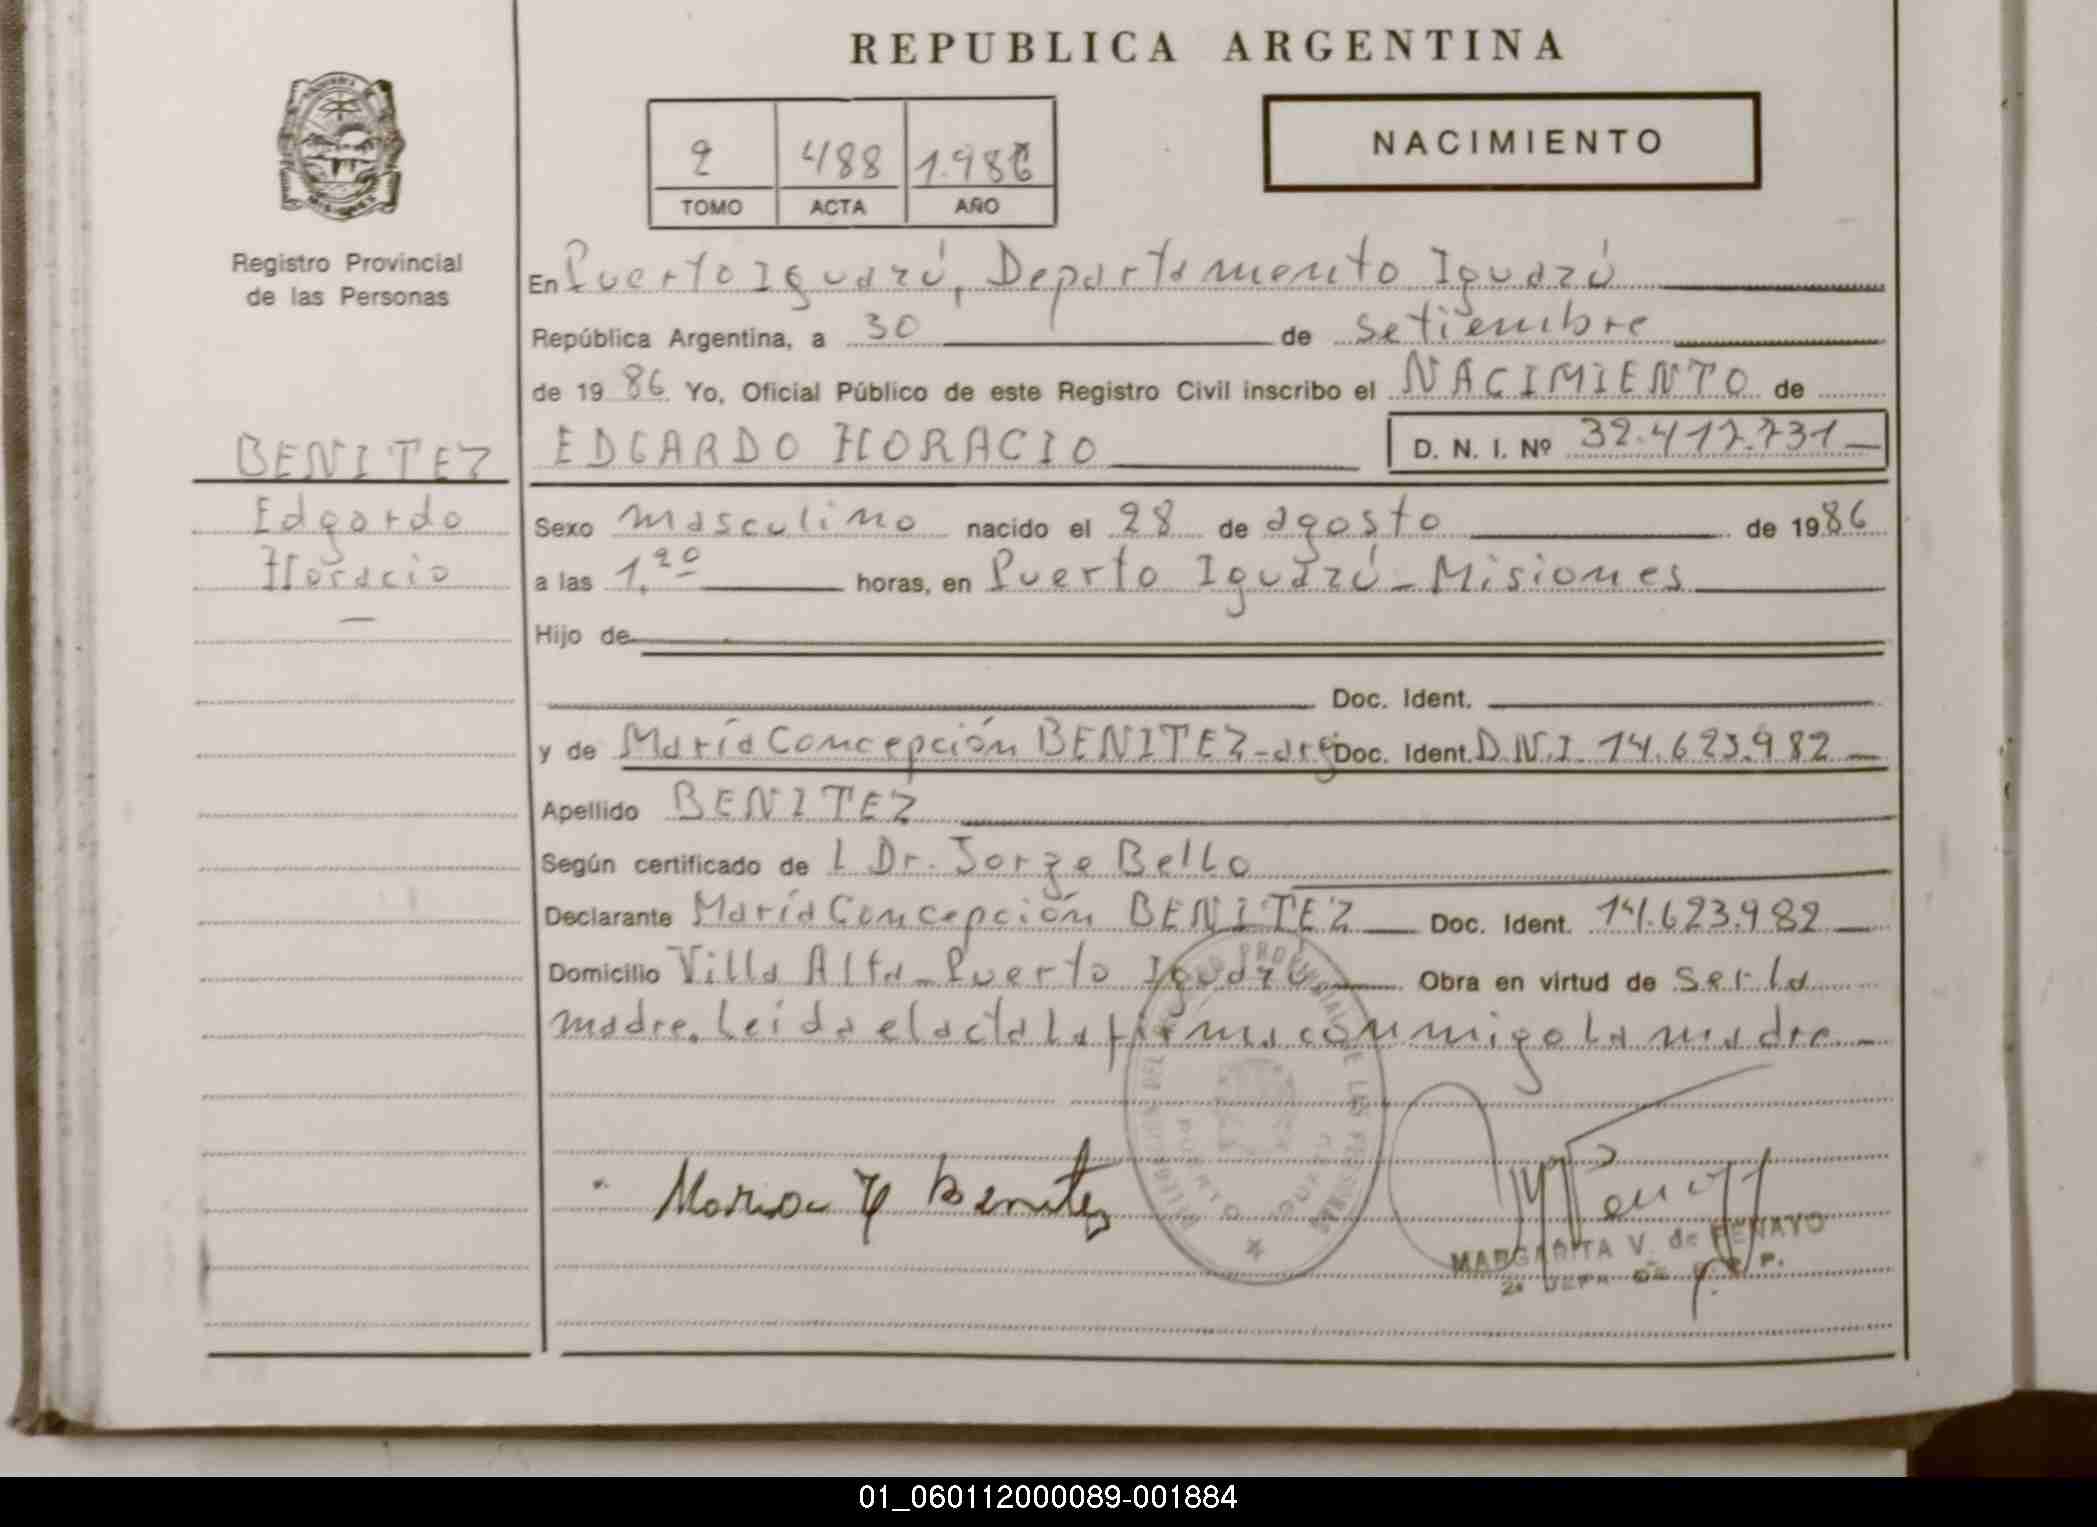 REPUBLICA ARGENTINA
2 488 1.986
TOMO ACTA AÑO
NACIMIENTO
Registro Provincial
de las Personas
En Puerto Iguazú, Departamento Iguazú
República Argentina, a 30 de setiembre
de 19 86 Yo, Oficial Público de este Registro Civil inscribo el NACIMIENTO de
BENITEZ
Edgardo
Horacio
EDGARDO HORACIO D. N. I. Nº 32.417.731
Sexo masculino nacido el 28 de agosto de 19 86
a las 1.20 horas, en Puerto Iguazú - Misiones
Hijo de
Doc. Ident.
y de María Concepción BENITEZ - arg Doc. Ident. D.N.I. 14.623.982
Apellido BENITEZ
Según certificado de l Dr. Jorge Bello
Declarante María Concepción BENITEZ Doc. Ident. 14.623.982
Domicilio Villa Alta - Puerto Iguazú Obra en virtud de ser la
madre. Leida el acta la firma conmigo la madre.
Maria C Benitez
MARGARITA V. de PENAYO
01_060112000089-001884